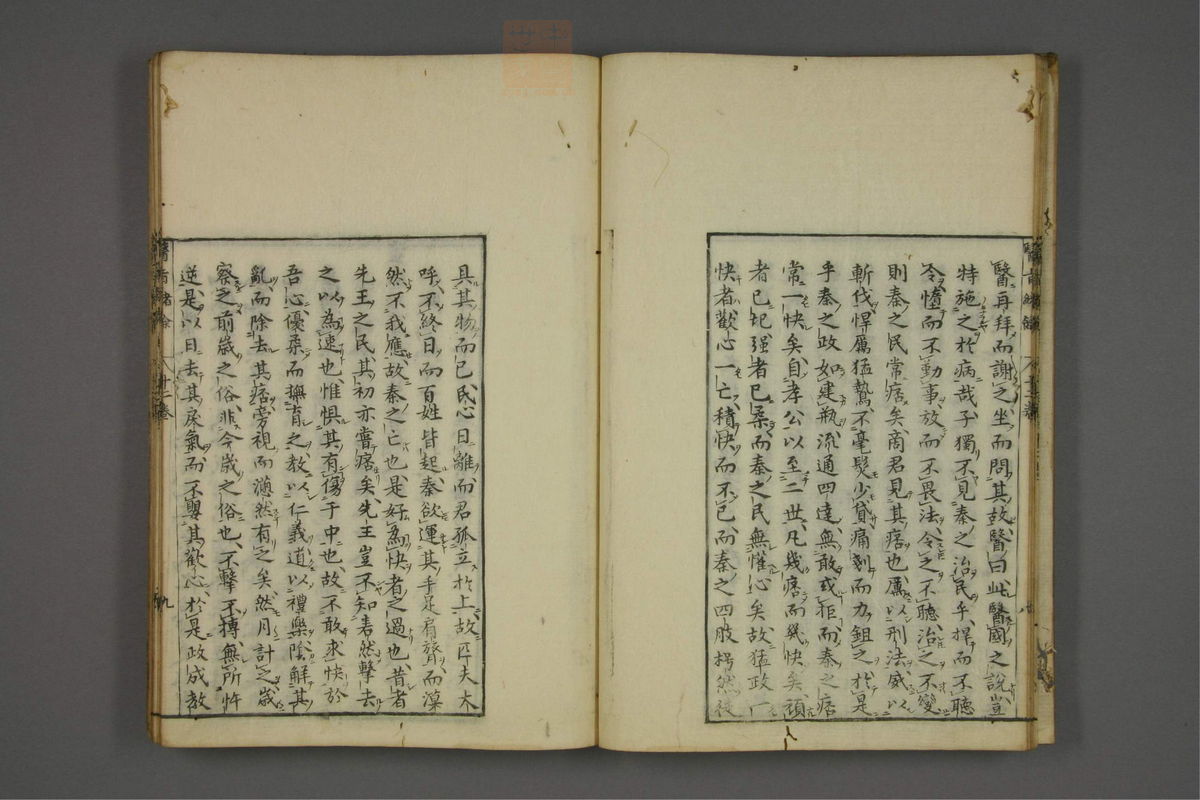 醫再拜而謝之坐而問其故醫曰此醫國之說豈
特施之於病哉子獨不見秦之治民乎捍而不聽
令憧而不勤事放而不畏法令之不聽治之不變
則秦之民常痞矣商君見其痞也厲以刑法威以
斬伐悍厲猛鷙不毫髮少貸痛剗而力鉏之於是
乎秦之政如建瓶流通四達無敢或拒而秦之痞
常一快矣自孝公以至二世凡幾痞而幾快矣頑
者已圯强者已柔而秦之民無懽心矣故猛政一
快者歡心一亡積快而不已而秦之四肢枵然徒
具其物而已民心日離而君孤立於上故匹夫大
呼不終日而百姓皆起秦欲運其手足肩膂而漠
然不我應故秦之亡也是好為快者之過也昔者
先王之民其初亦嘗痞矣先王豈不知砉然擊去
之以為速也惟惧其有傷于中也故不敢求快於
吾心優柔而撫育之教以仁義道以禮樂陰解其
亂而除去其痞旁視而懣然有之矣然月計之歲
察之前歲之俗非今歲之俗也不擊不搏無所忤
逆是以日去其戾氣而不嬰其歡心於是政成教
九